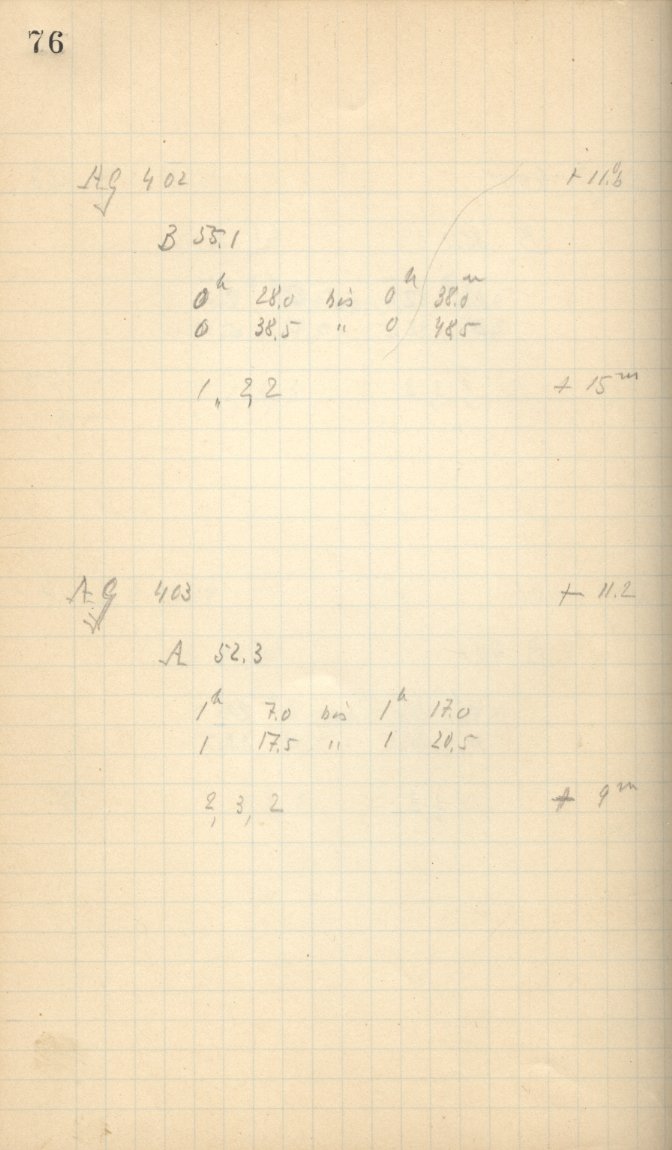 76
AG 402 + 11.8
B 55.1
0h 28.0 bis 0h 38.0m
0 38.5 " 0 48.5
1, 2, 2 + 15m
AG 403 + 11.2
A 52.3
1h 7.0 bis 1h 17.0
1 17.5 " 1 20.5
2, 3, 2 + 9m